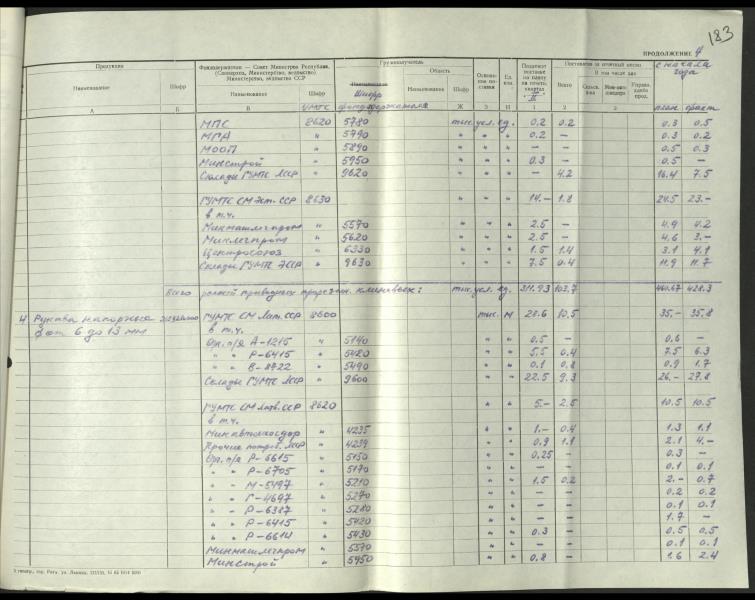 183
ПРОДОЛЖЕНИЕ 4
Продукция
Фондодержатели — Совет Министров Республики, (Совнархоз, Министерство, ведомство) Министерства, ведомства ССР
Грузополучатель
Поставлено за отчетный месяц
с начала года
Наименование Шифр Наименование Шифр Шифр фондодержателя Область Наименование Шифр Ед. изм. Всего В том числе план. факт.
А Б В УМТС Ж З И 1 2 3
МПС 8620 5780 тыс.усл.ед. 0.2 0.2 0.3 0.5
МГА " 5790 " " 0.2 — 0.3 0.2
МООП " 5890 " " — — 0.5 0.3
Минстрой " 5950 " " 0.3 — 0.5 —
Склады ГУМТС ЛССР " 9620 " " — 4.2 16.4 7.5
ГУМТС СМ Эст. ССР 8630 " " 14.— 1.8 24.5 23.—
в т.ч.
Минмашлегпром " 5570 " " 2.5 — 4.9 4.2
Минлегпром " 5620 " " 2.5 — 4.6 3.—
Центросоюз " 6330 " " 1.5 1.4 3.1 4.1
Склады ГУМТС ЭССР " 9630 " " 7.5 0.4 11.9 11.7
Всего ремней приводных прорезин. клиновых: тыс.усл.ед. 311.93 103.7 460.67 428.3
4 Рукава напорные ф от 6 до 13 мм ГУМТС СМ Лат. ССР 8600 тыс. м 28.6 10.5 35.— 35.8
в т.ч.
Орг. п/я А-1215 " 5140 " " 0.5 — 0.6 —
" " Р-6415 " 5420 " " 5.5 0.4 7.5 6.3
" " В-8722 " 5490 " " 0.1 0.8 0.9 1.7
Склады ГУМТС ЛССР " 9600 " " 22.5 9.3 26.— 27.8
ГУМТС СМ Литв. ССР 8620 " " 5.— 2.5 10.5 10.5
в т.ч.
Минавтошосдор " 4235 " " 1.— 0.4 1.3 1.1
Прочие потреб. ЛССР " 4239 " " 0.9 1.1 2.1 4.—
Орг. п/я Р-6615 " 5150 " " 0.25 — 0.3 —
" " Р-6705 " 5170 " " — — 0.1 0.1
" " М-5497 " 5210 " " 1.5 0.2 2.— 0.7
" " Г-4697 " 5270 " " — — 0.2 0.2
" " Р-6387 " 5280 " " — — 0.1 0.1
" " Р-6415 " 5420 " " — — 1.7 —
" " Р-6614 " 5430 " " 0.3 — 0.5 0.5
Минмашлегпром " 5570 " " — — 0.1 0.1
Минстрой " 5950 " " 0.8 — 1.6 2.4